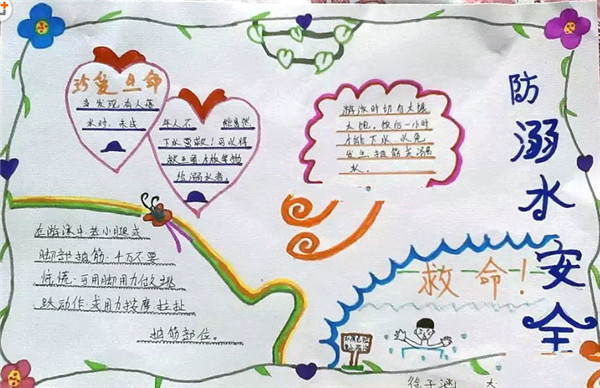 防溺水安全
珍爱生命
当发现有人落
水时，未成
年人不
下水营救！可以将
救生圈
给溺水者。
游泳时切勿太饿
太饱。饭后一小时
才能下水，以免
发生抽筋
水。
在游泳中若小腿或
脚部抽筋，千万不要
惊慌，可用脚用力做蹬
跳动作，或用力按摩拉扯
抽筋部位。
救命！